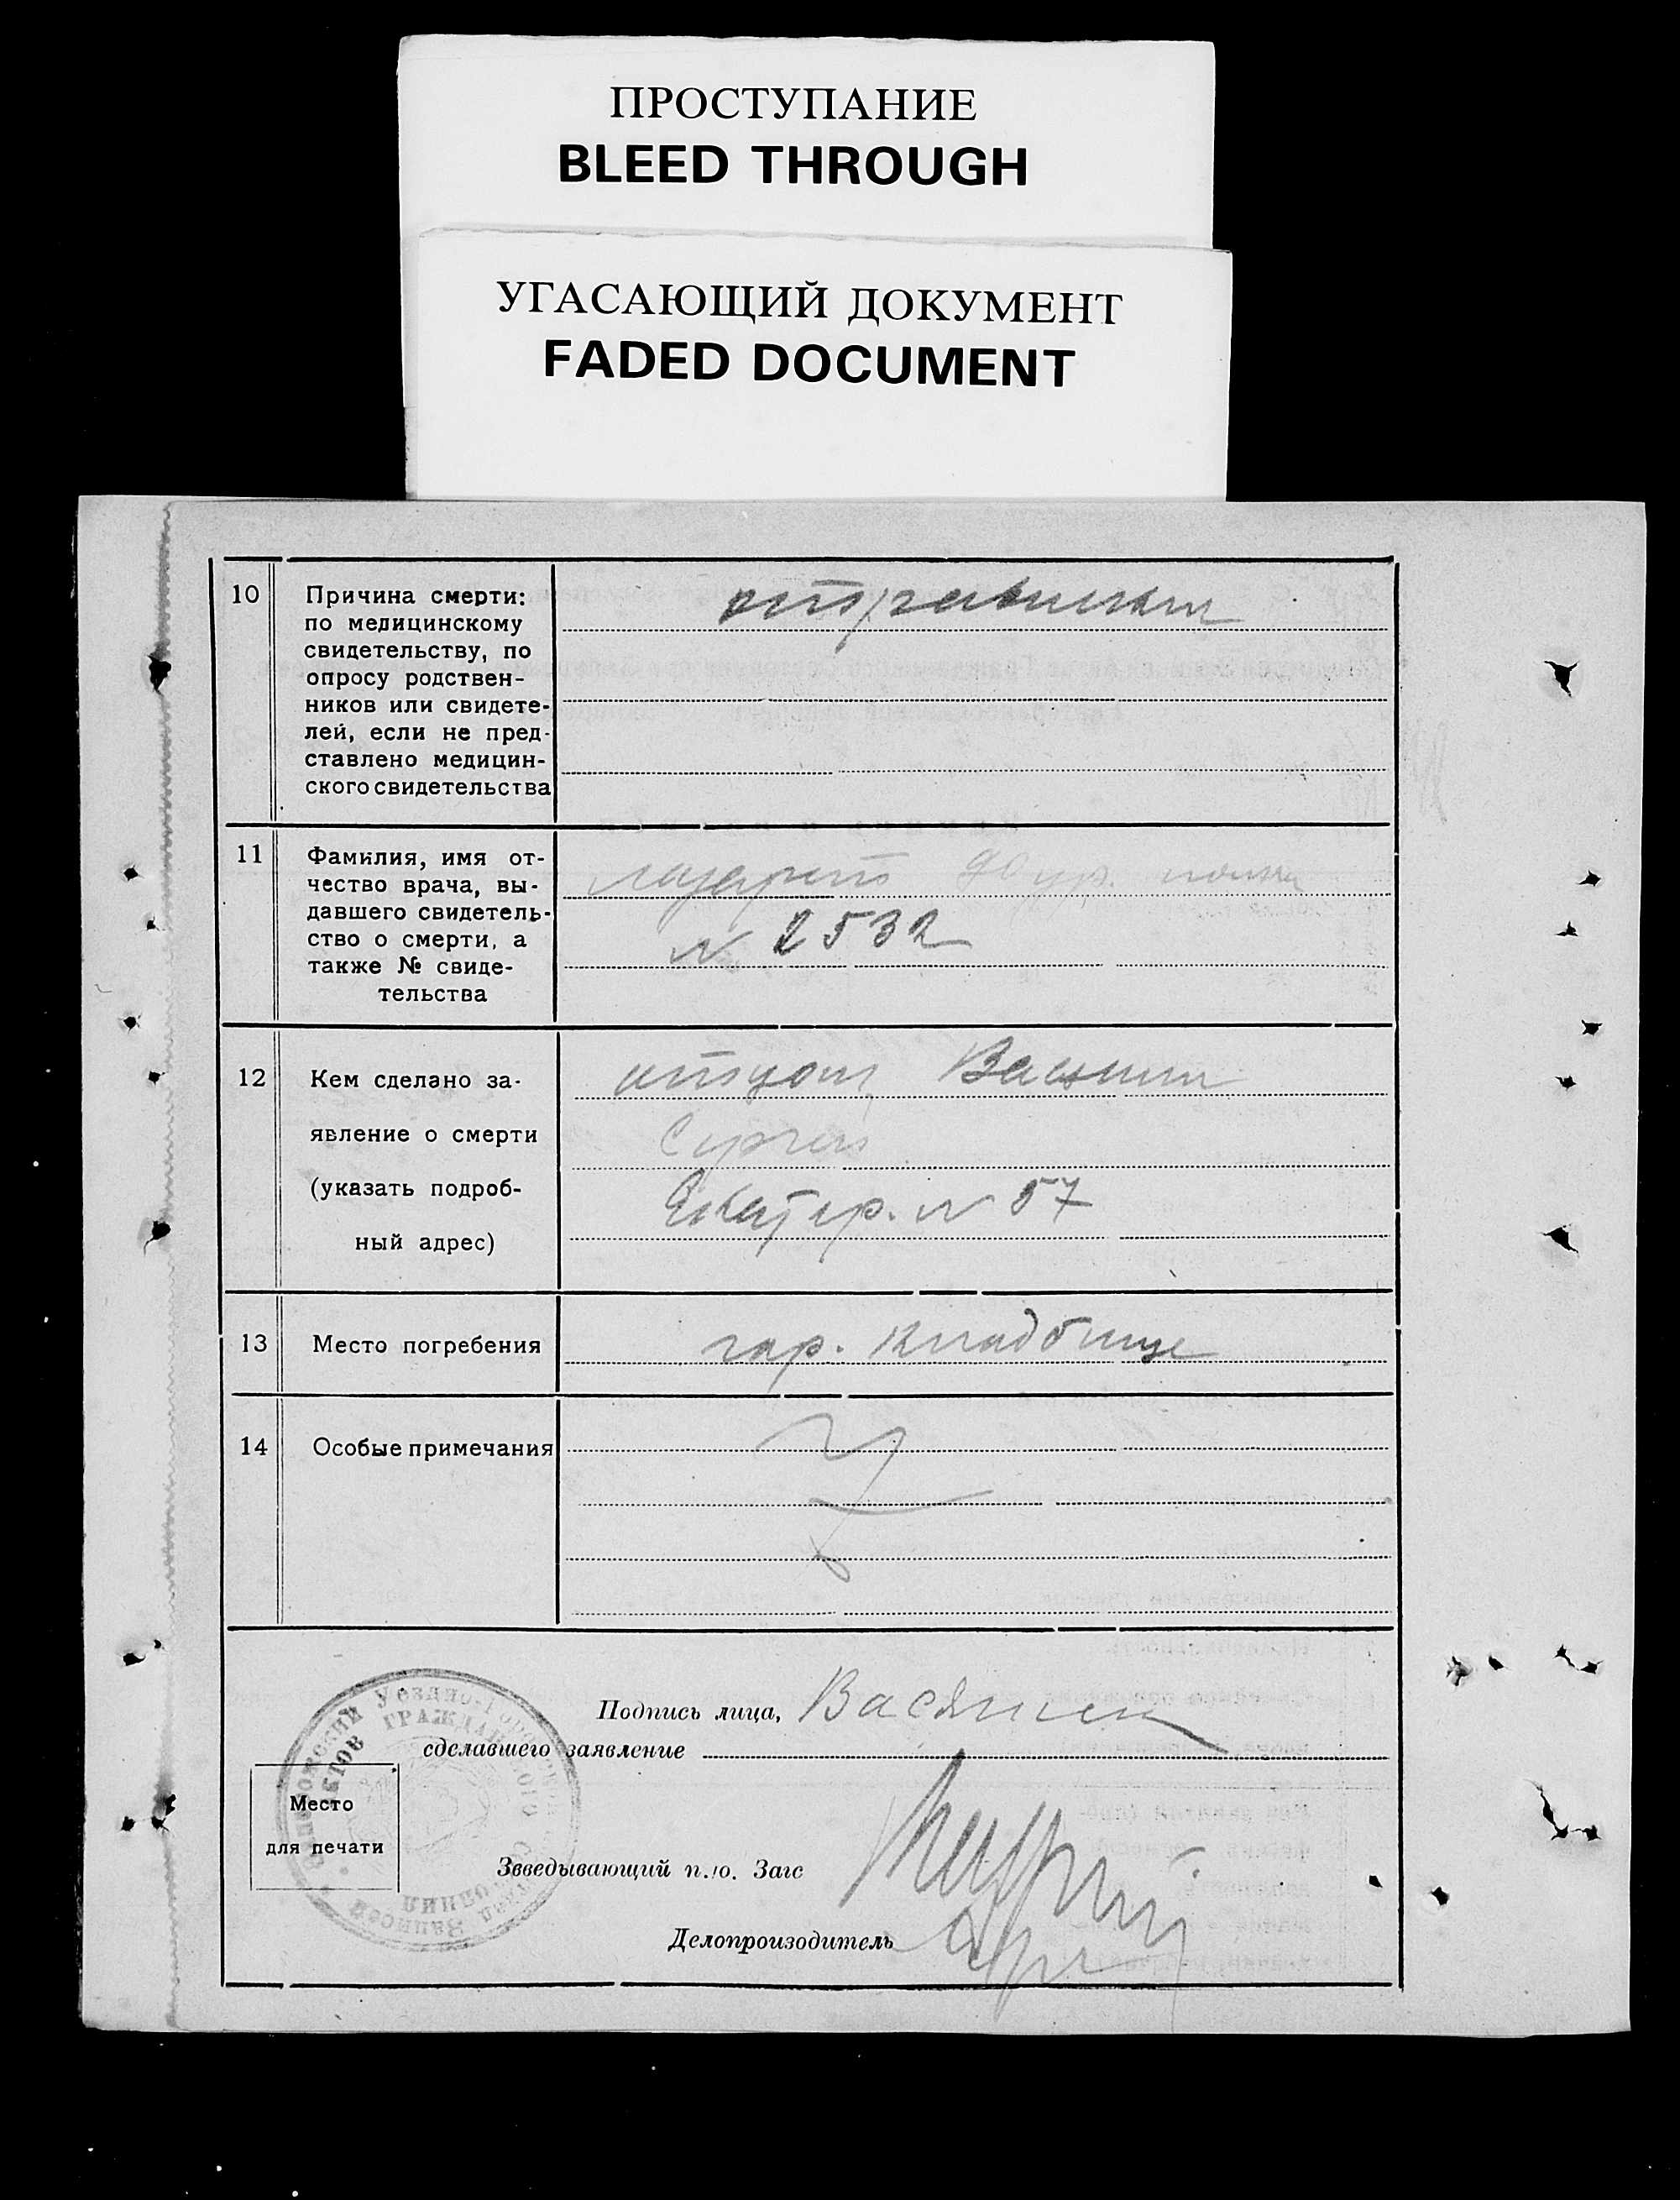 ПРОСТУПАНИЕ
BLEED THROUGH
УГАСАЮЩИЙ ДОКУМЕНТ
FADED DOCUMENT
10 Причина смерти:
по медицинскому
свидетельству, по
опросу родствен-
ников или свидете-
лей, если не пред-
ставлено медицин-
ского свидетельства
отравление
11 Фамилия, имя от-
чество врача, вы-
давшего свидетель-
ство о смерти, а
также № свиде-
тельства
лазарет
№ 2532
12 Кем сделано за-
явление о смерти
(указать подроб-
ный адрес)
отцом
Сергей
Екатер. № 57
13 Место погребения
гор. кладбище
14 Особые примечания
Подпись лица,
сделавшего заявление
Место
для печати
Зоведывающий п./о. Загс
Делопроизводитель
Уездно-Город
ГРАЖДАНСКОГО
АКТОВ
Записей